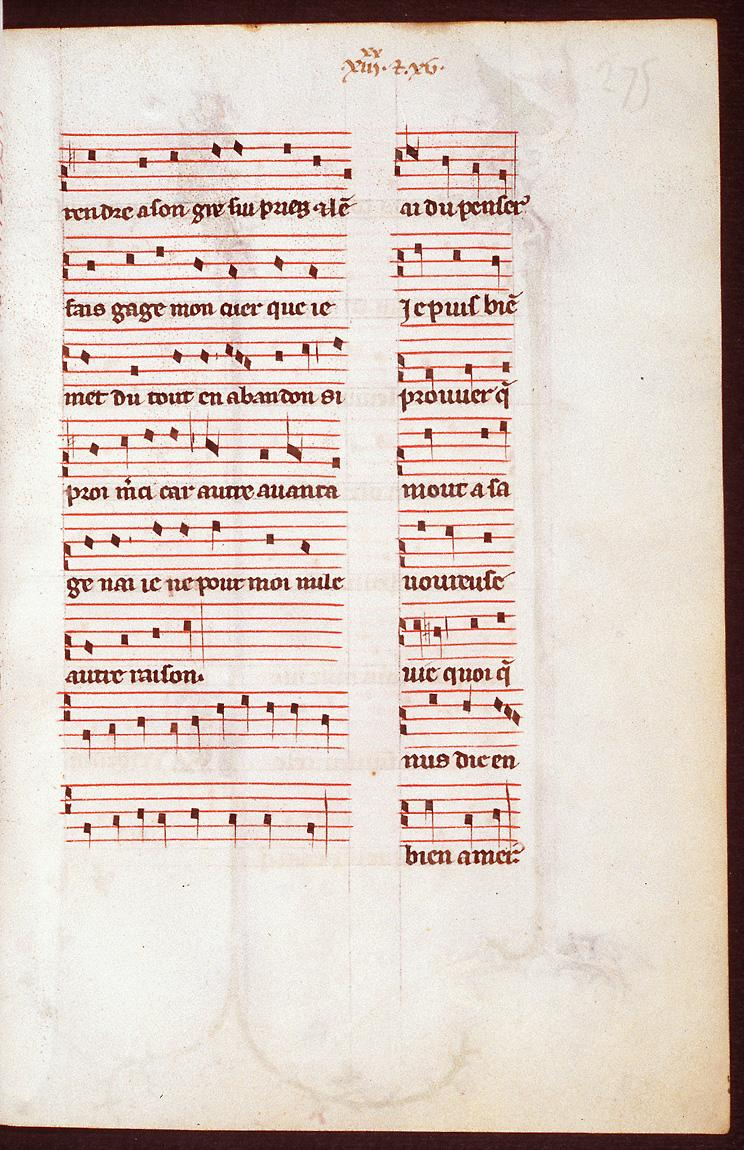 xx
.xiii. et .xv.
275
rendre a son gre sui pries ⁊ le᷑
fais gage mon cuer que ie
met du tout en abandon si
proi m̾ci car autre auanta
ge nai ie ne pour moi nule
autre raison.
ai du penser
Je puis biẽ
prouuer q̃
mout a sa
uoureuse
uie quoi q̃
nus die en
bien amer.